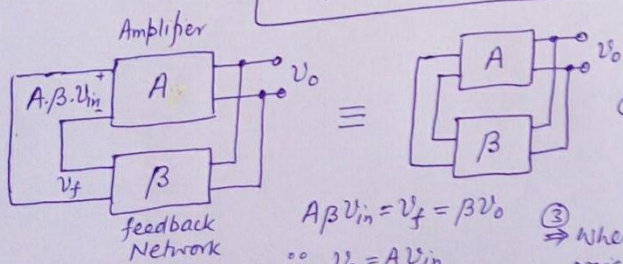 Amplifier
A
A.β.Vin
+
-
Vo
≡
A
Vo
β
Vf
β
feedback
Network
AβVin = Vf = βVo
③
⇒ Whe
∵ Vo = AVin